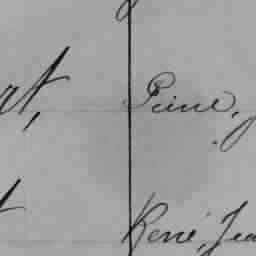 rt, Peine,
t René, Jea